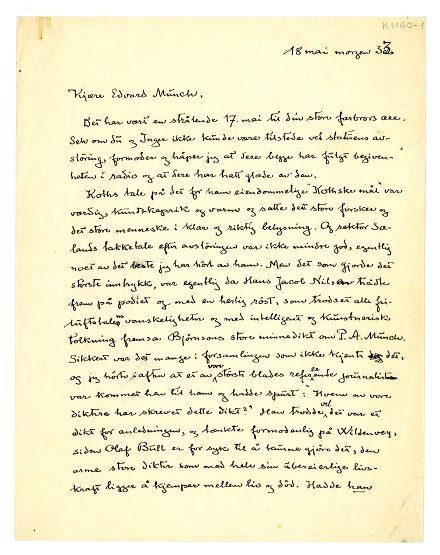 K1160-1
18 mai morgen 33.
Kjære Edvard Munch.
Det har vært en strålende 17. mai til din store farbrors ære.
Selv om du og Inger ikke kunde være tilstede ved statuens av-
sløring, formoder og håper jeg at dere begge har fulgt begiven-
heten i radio og at dere har hatt glede av den.
Kohts tale på det for ham eiendommelige "Kohtske mål" var
verdig, kunnskapsrik og varm og satte den store forsker og
det store menneske i klar og riktig belysning. Og rektor Sæ-
lands takketale efter avsløringen var ikke mindre god, egentlig
noe av det beste jeg har hørt av ham. Men det som gjorde det
største inntrykk, var egentlig da Hans Jacob Nilsen trådte
frem på podiet og med en herlig röst, som trodset alle fri-
luftstalens vanskeligheter og med intelligent og kunstnerisk
tolkning fremsa Björnsons store minnedikt om P. A. Munch.
Sikkert var det mange i forsamlingen som ikke kjente det,
og jeg hørte iaften at et av vore störste blades referende journalist
var kommet hen til ham og hadde spurt: "Hvem av vore
diktere har skrevet dette dikt?" Han trodde vel det var et
dikt for anledningen, og tænkte formodenlig på Wildenvey,
siden Olaf Bull er for syk til å kunne gjöre det, den
arme store dikter som med hele sin ubeseierlige livs-
kraft ligger å kjemper mellem liv og död. Hadde han